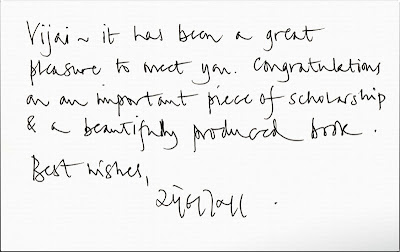 Vijai ~ it has been a great
pleasure to meet you. Congratulations
on an important piece of scholarship
& a beautifully produced book.
Best wishes,